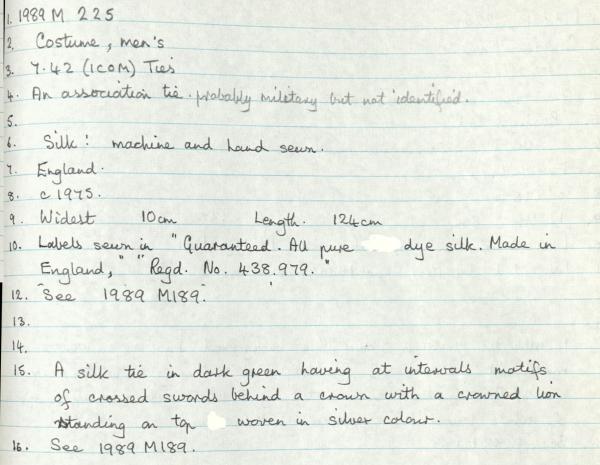 1. 1989 M 225
2. Costume, men's
3. 7.42 (ICOM) Ties
4. An association tie. probably military but not identified.
5.
6. Silk: machine and hand sewn.
7. England.
8. c 1975.
9. Widest 10cm Length. 124cm
10. Labels sewn in "Guaranteed. All pure dye silk. Made in
England," "Regd. No. 438.979."
12. See 1989 M189.
13.
14.
15. A silk tie in dark green having at intervals motifs
of crossed swords behind a crown with a crowned lion
standing on top woven in silver colour.
16. See 1989 M189.